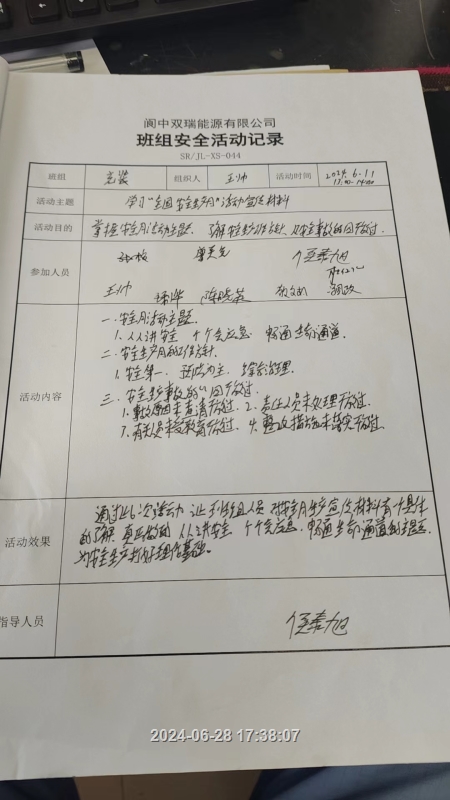 阆中双瑞能源有限公司
班组安全活动记录
SR/JL-XS-044
班组 充装 组织人 王帅 活动时间 2024.6.11
活动主题 学习“全国安全生产月”活动宣传材料
活动目的 掌握安全月活动主题、了解安全生产工作方针、及安全事故的四不放过.
参加人员
王帅 陈晓英
活动内容
一.安全月活动主题.
1.人人讲安全 个个会应急 畅通生命通道.
二.安全生产月的工作方针.
1.安全第一. 预防为主. 综合治理.
三.安全生产事故的“四不放过.
1.事故原因未查清不放过. 2.责任人员未处理不放过.
3.有关人员未受教育不放过. 4.整改措施未落实不放过.
活动效果
通过此次活动 让到班组人员 对安全月生产宣传材料有个具体
的了解. 真正做到 人人讲安全 个个会应急. 畅通生命通道的主题.
为安全生产打好理论基础.
指导人员
2024-06-28 17:38:07